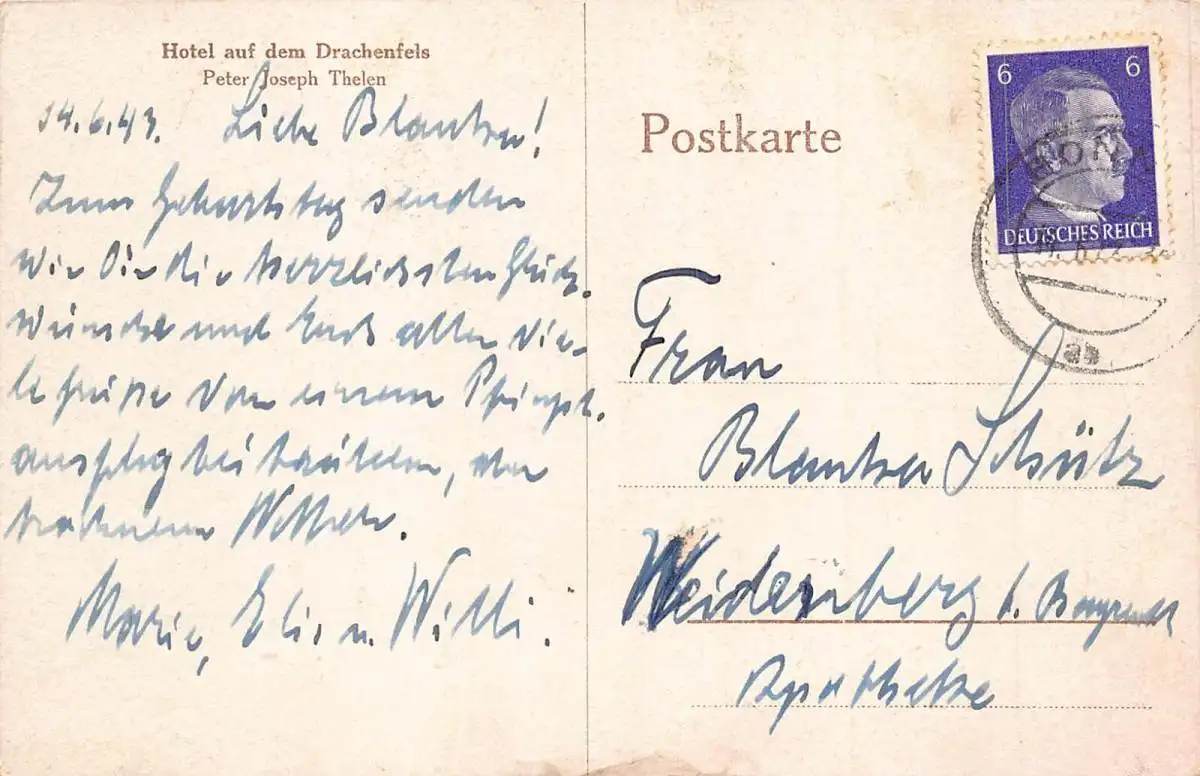 Hotel auf dem Drachenfels
Peter Joseph Thelen
14.6.43. Liebe Blanka!
Zum Geburtstag senden
wir Dir die herzlichsten Glück-
wünsche und Euch allen vie-
le Grüße von einem Pfingst-
ausflug bei
trockenem Wetter.
Marie, Elis u. Willi.
Postkarte
6 6
DEUTSCHES REICH
Frau
Blanka Schütz
Weidenberg b. Bayreuth
Apotheke